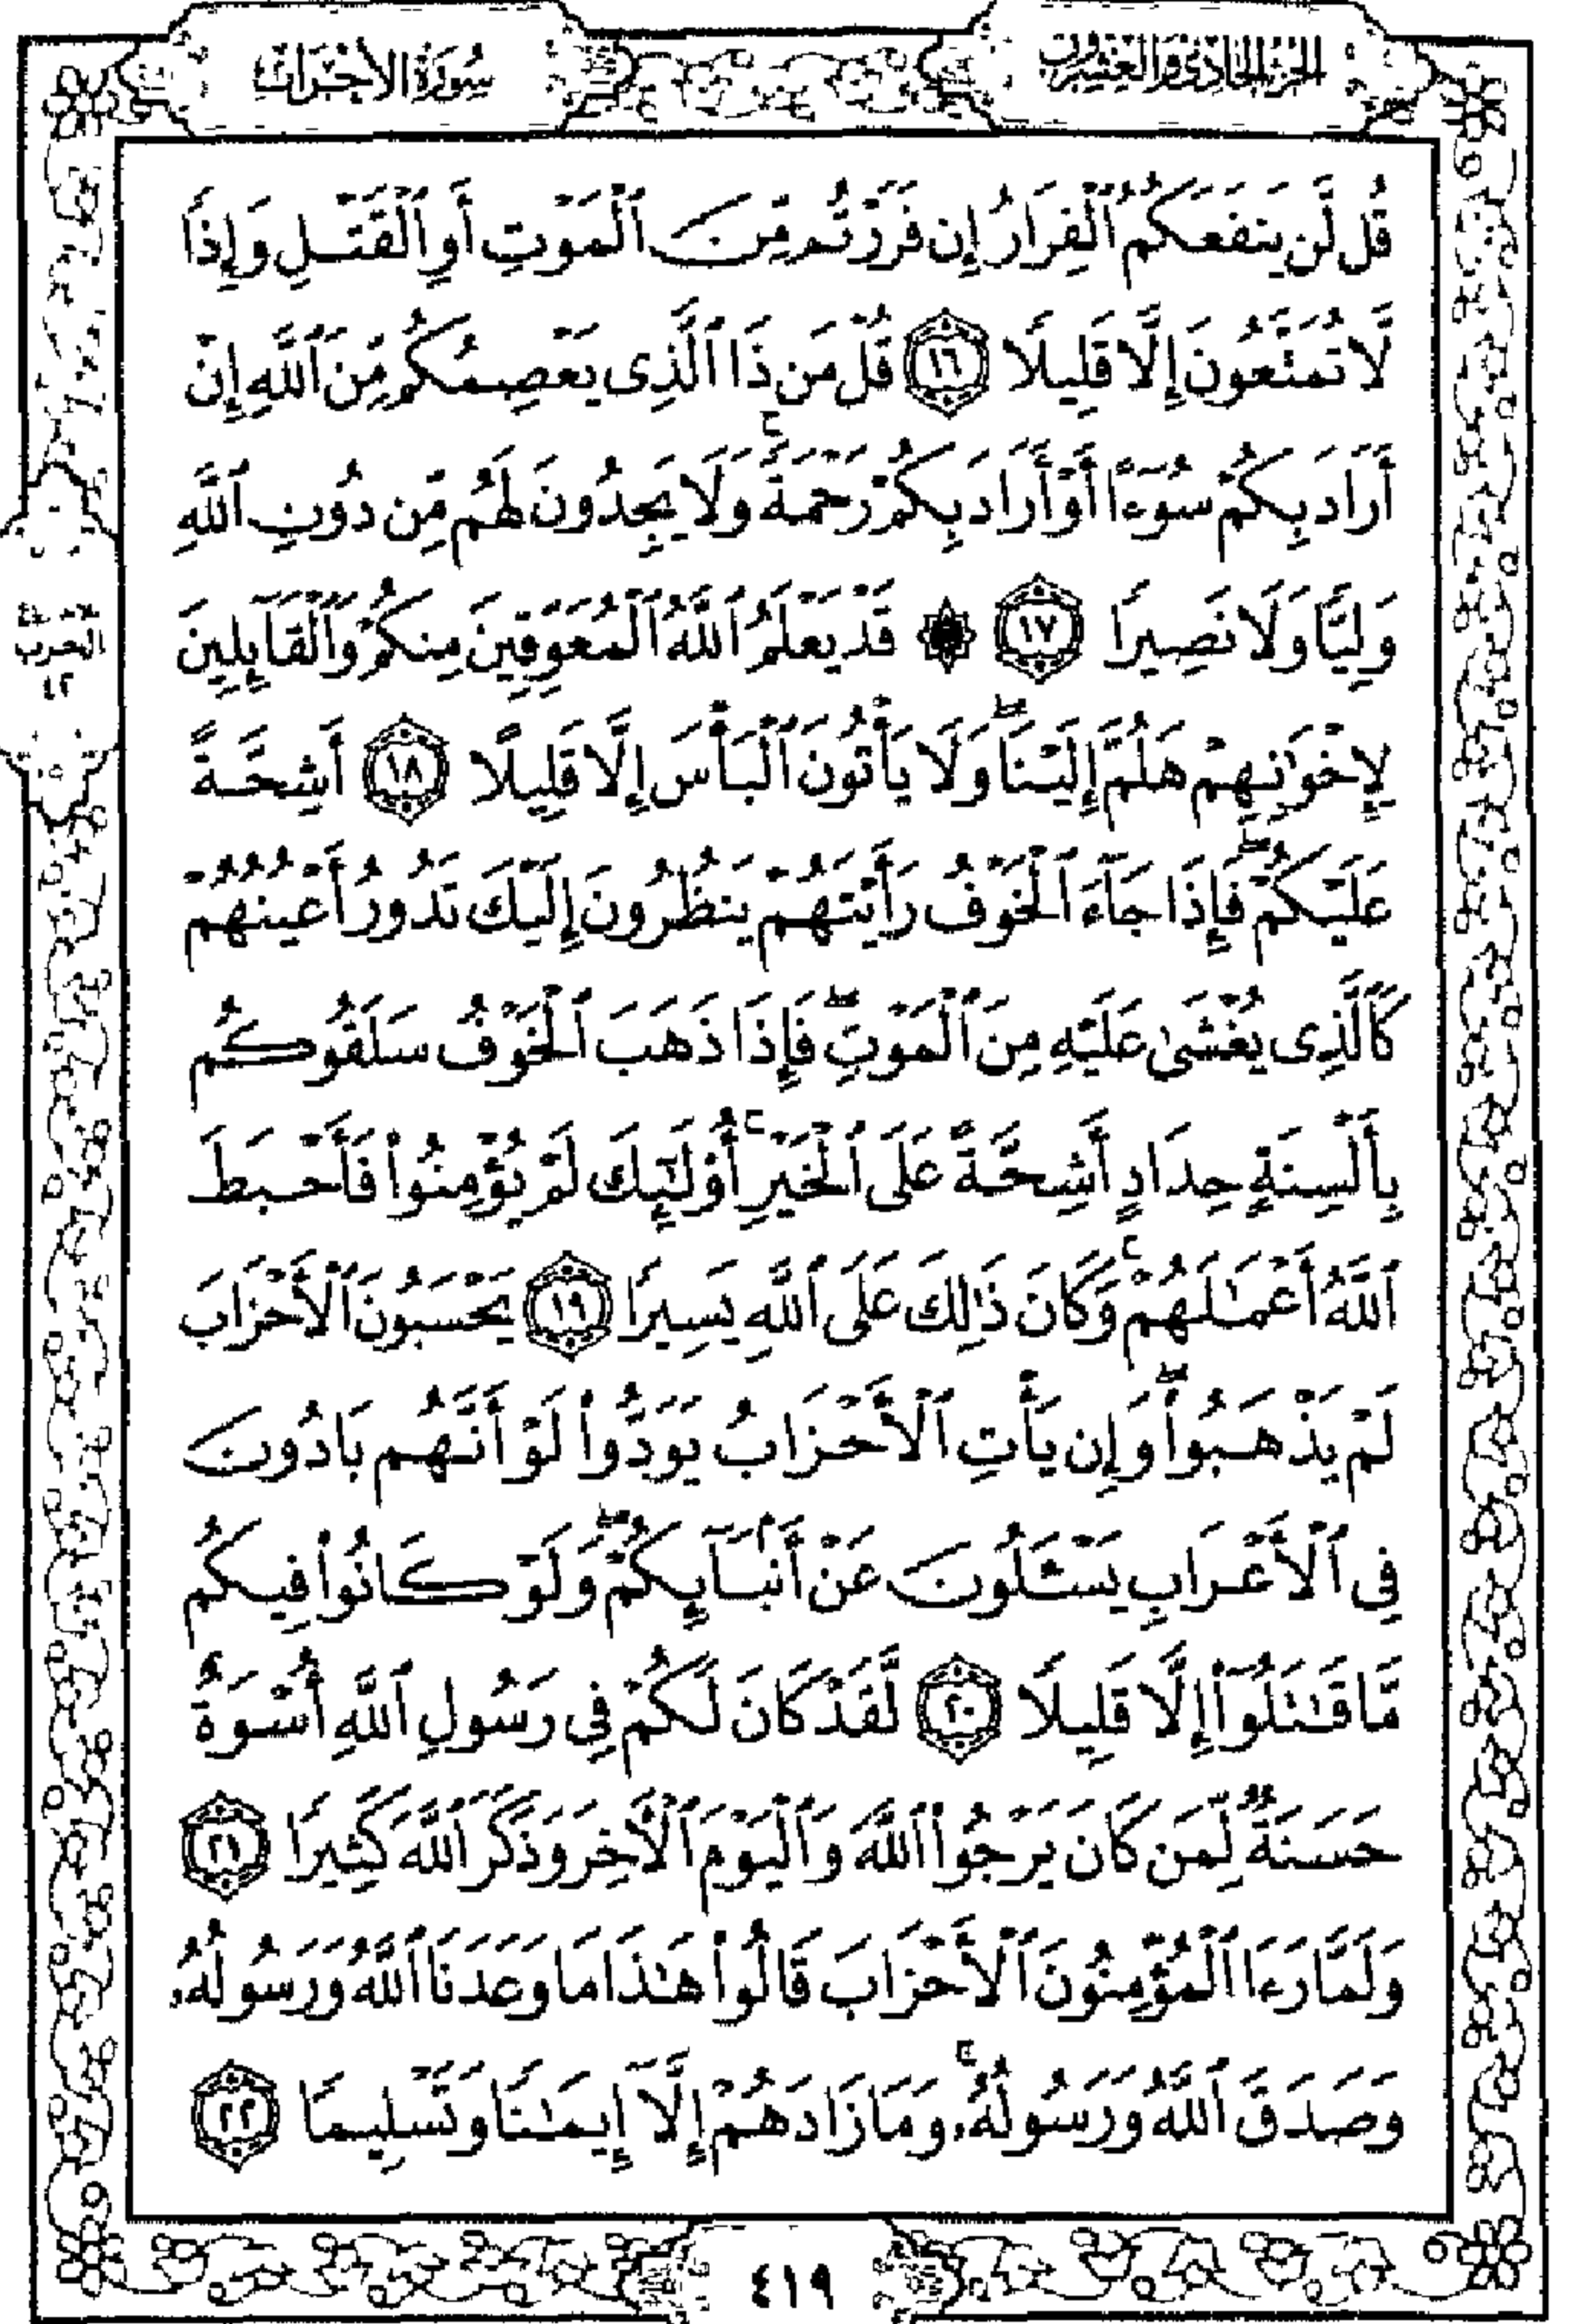 الجزء الحادي والعشرون
سورة الأحزاب
قُل لَّن يَنفَعَكُمُ ٱلْفِرَارُ إِن فَرَرْتُم مِّنَ ٱلْمَوْتِ أَوِ ٱلْقَتْلِ وَإِذًا
لَّا تُمَتَّعُونَ إِلَّا قَلِيلًا ١٦ قُلْ مَن ذَا ٱلَّذِى يَعْصِمُكُم مِّنَ ٱللَّهِ إِنْ
أَرَادَ بِكُمْ سُوٓءًا أَوْ أَرَادَ بِكُمْ رَحْمَةً ۚ وَلَا يَجِدُونَ لَهُم مِّن دُونِ ٱللَّهِ
وَلِيًّا وَلَا نَصِيرًا ١٧ ۞ قَدْ يَعْلَمُ ٱللَّهُ ٱلْمُعَوِّقِينَ مِنكُمْ وَٱلْقَآئِلِينَ
لِإِخْوَٰنِهِمْ هَلُمَّ إِلَيْنَا ۖ وَلَا يَأْتُونَ ٱلْبَأْسَ إِلَّا قَلِيلًا ١٨ أَشِحَّةً
عَلَيْكُمْ ۖ فَإِذَا جَآءَ ٱلْخَوْفُ رَأَيْتَهُمْ يَنظُرُونَ إِلَيْكَ تَدُورُ أَعْيُنُهُمْ
كَٱلَّذِى يُغْشَىٰ عَلَيْهِ مِنَ ٱلْمَوْتِ ۖ فَإِذَا ذَهَبَ ٱلْخَوْفُ سَلَقُوكُم
بِأَلْسِنَةٍ حِدَادٍ أَشِحَّةً عَلَى ٱلْخَيْرِ ۚ أُو۟لَٰٓئِكَ لَمْ يُؤْمِنُوا۟ فَأَحْبَطَ
ٱللَّهُ أَعْمَٰلَهُمْ ۚ وَكَانَ ذَٰلِكَ عَلَى ٱللَّهِ يَسِيرًا ١٩ يَحْسَبُونَ ٱلْأَحْزَابَ
لَمْ يَذْهَبُوا۟ ۖ وَإِن يَأْتِ ٱلْأَحْزَابُ يَوَدُّوا۟ لَوْ أَنَّهُم بَادُونَ
فِى ٱلْأَعْرَابِ يَسْـَٔلُونَ عَنْ أَنۢبَآئِكُمْ ۖ وَلَوْ كَانُوا۟ فِيكُم
مَّا قَٰتَلُوٓا۟ إِلَّا قَلِيلًا ٢٠ لَّقَدْ كَانَ لَكُمْ فِى رَسُولِ ٱللَّهِ أُسْوَةٌ
حَسَنَةٌ لِّمَن كَانَ يَرْجُوا۟ ٱللَّهَ وَٱلْيَوْمَ ٱلْـَٔاخِرَ وَذَكَرَ ٱللَّهَ كَثِيرًا ٢١
وَلَمَّا رَءَا ٱلْمُؤْمِنُونَ ٱلْأَحْزَابَ قَالُوا۟ هَٰذَا مَا وَعَدَنَا ٱللَّهُ وَرَسُولُهُۥ
وَصَدَقَ ٱللَّهُ وَرَسُولُهُۥ ۚ وَمَا زَادَهُمْ إِلَّآ إِيمَٰنًا وَتَسْلِيمًا ٢٢
الحزب
٤٢
٤١٩